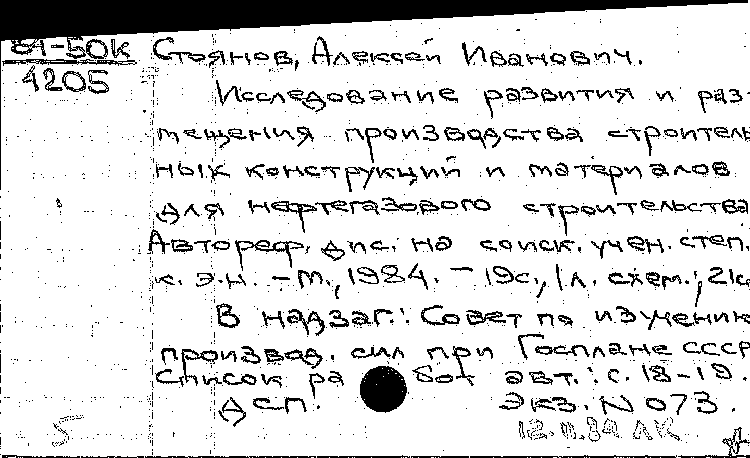 84-50к
4205
Стоянов, Алексей Иванович.
Исследование развития и раз-
мещения производства строитель
ных конструкций и материалов
для нефтегазового строительства
Автореф. дис. на соиск. учен. степ.
к. э.н. – М., 1984. – 19с., 1л. схем.; 21с
В надзаг.: Совет по изучению
производ. сил при Госплане СССР
Список работ авт.: с. 18-19.
ДСП. Экз. N 073.
5